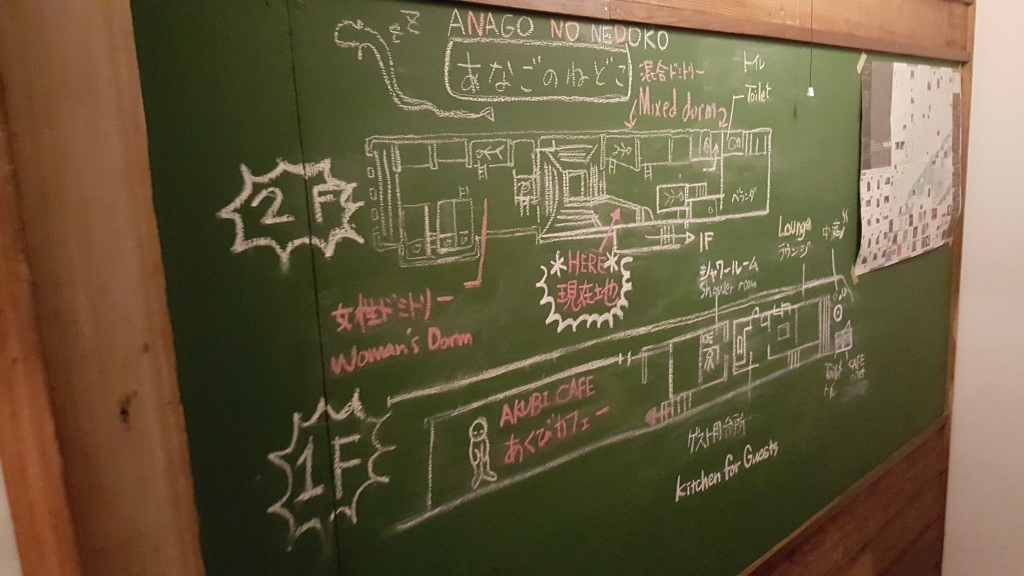 zzZ
ANAGO NO NEDOKO
あなごのねどこ
混合ドミトリー
Mixed dorm
トイレ
Toilet
2F
ベランダ
1F
*HERE*
現在地
女性ドミトリー
Woman's Dorm
シャワールーム
Shower room
Lounge
ラウンジ
中庭
1F
AKUBI CAFE
あくびカフェー
ゲスト用台所
Kitchen for Guests